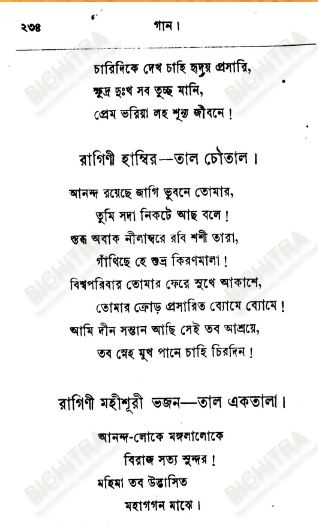 ২৩৪ গান।
চারিদিকে দেখ চাহি হৃদয় প্রসারি,
ক্ষুদ্র দুঃখ সব তুচ্ছ মানি,
প্রেম ভরিয়া লহ শূন্য জীবনে!
রাগিণী হাম্বির—তাল চৌতাল।
আনন্দ রয়েছে জাগি ভুবনে তোমার,
তুমি সদা নিকটে আছ বলে!
স্তব্ধ অবাক নীলাম্বরে রবি শশী তারা,
গাঁথিছে হে শুভ্র কিরণমালা!
বিশ্বপরিবার তোমার ফেরে সুখে আকাশে,
তোমার ক্রোড় প্রসারিত ব্যোমে ব্যোমে!
আমি দীন সন্তান আছি সেই তব আশ্রয়ে,
তব স্নেহ মুখ পানে চাহি চিরদিন!
রাগিণী মহীশূরী ভজন—তাল একতালা।
আনন্দ-লোকে মঙ্গলালোকে
বিরাজ সত্য সুন্দর!
মহিমা তব উদ্ভাসিত
মহাগগন মাঝে।
BICHITRA